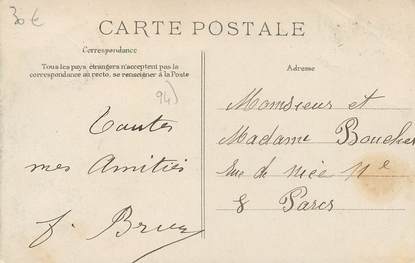 30 €
CARTE POSTALE
Correspondance
Tous les pays étrangers n'acceptent pas la
correspondance au recto, se renseigner à la Poste
94)
Toutes
mes Amitiés
f.
Adresse
Monsieur et
Madame Boucher
rue de nice 11e
8 Paris